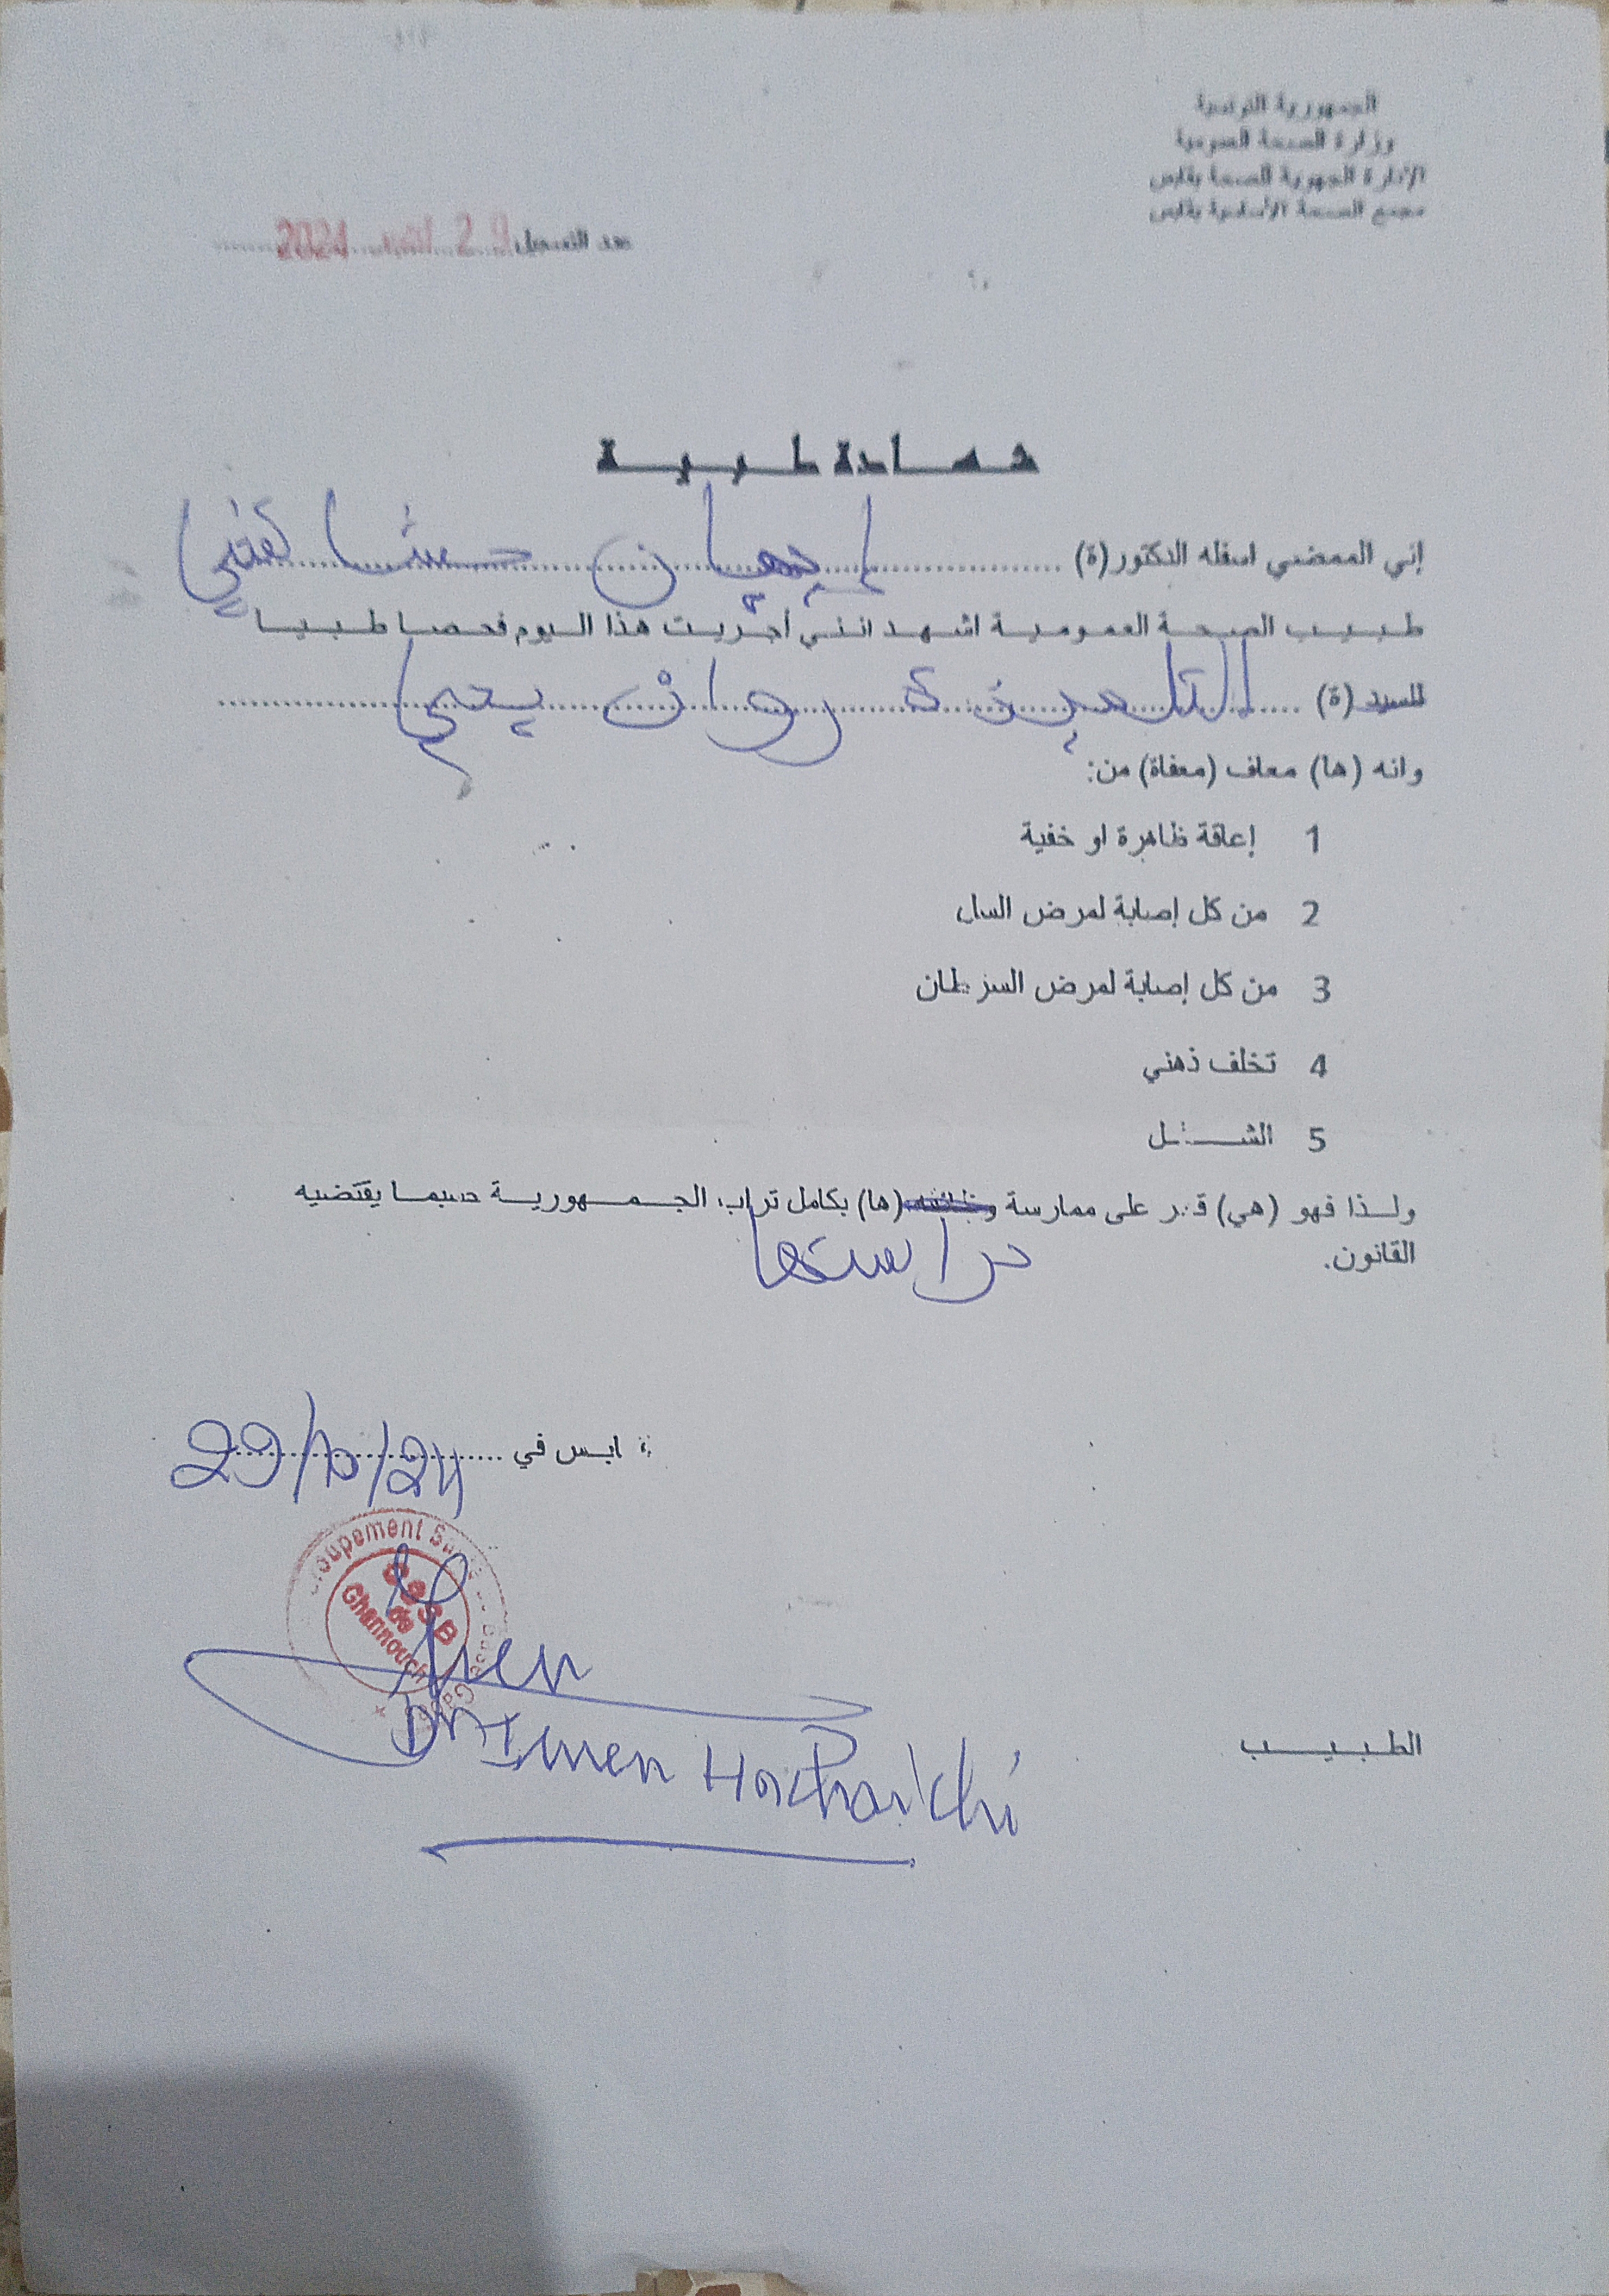 الجمهورية التونسية
وزارة الصحة العمومية
الإدارة الجهوية للصحة بقابس
مجمع الصحة الأساسية بقابس
عدد التسجيل 29 2024
شهادة طبية
إني الممضي اسفله الدكتور (ة) إيمان
طبيب الصحة العمومية اشهد انني أجريت هذا اليوم فحصا طبيا
للسيد (ة) التلميذة روان يحي
وانه (ها) معاف (معفاة) من:
1 إعاقة ظاهرة او خفية
2 من كل إصابة لمرض السل
3 من كل إصابة لمرض السرطان
4 تخلف ذهني
5 الشلل
ولذا فهو (هي) قادر على ممارسة وظائفه (ها) بكامل تراب الجمهورية حسبما يقتضيه
دراستها
القانون.
قابس في 29/10/24
Groupement Santé de Base Gabès
CSSB
de
Ghannouch
Dr Imen
الطبيب